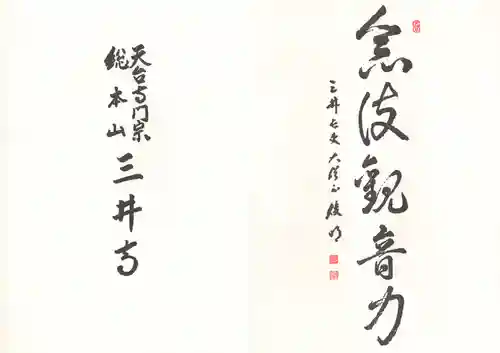 念彼觀音力
三井長吏 大僧正 俊明
天台寺門宗
総本山
三井寺